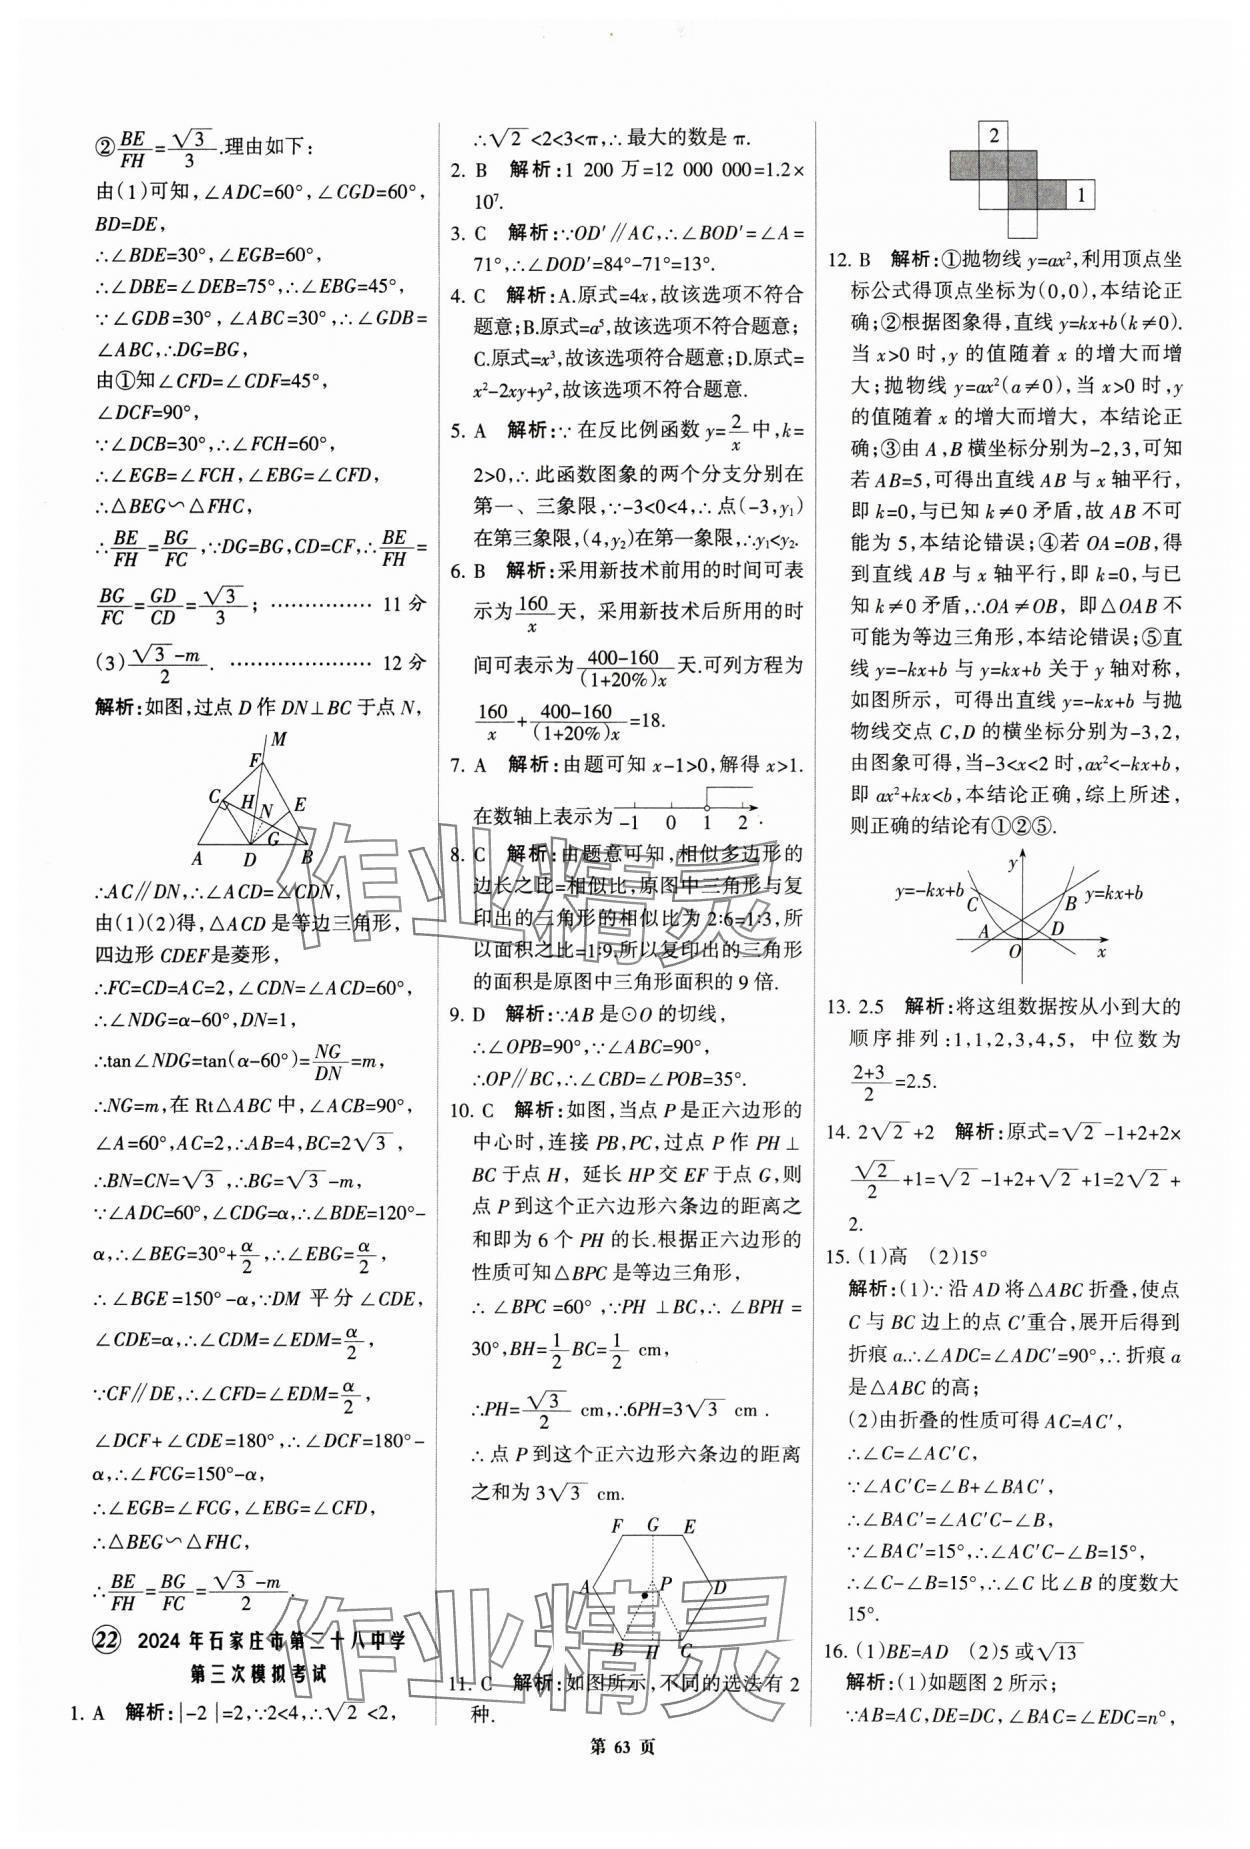 ②BE/FH=√3/3.理由如下：
由(1)可知,∠ADC=60°,∠CGD=60°,
BD=DE,
∴∠BDE=30°,∠EGB=60°,
∴∠DBE=∠DEB=75°,∴∠EBG=45°,
∵∠GDB=30°,∠ABC=30°,∴∠GDB=
∠ABC,∴DG=BG,
由①知∠CFD=∠CDF=45°,
∠DCF=90°,
∵∠DCB=30°,∴∠FCH=60°,
∴∠EGB=∠FCH,∠EBG=∠CFD,
∴△BEG∽△FHC,
∴BE/FH=BG/FC,∵DG=BG,CD=CF,∴BE/FH=
BG/FC=GD/CD=√3/3; …………… 11分
(3)(√3-m)/2. ………………… 12分
解析:如图,过点D作DN⊥BC于点N,
M
F
C H E
N
G
A D B
∴AC∥DN,∴∠ACD=∠CDN,
由(1)(2)得,△ACD是等边三角形,
四边形CDEF是菱形,
∴FC=CD=AC=2,∠CDN=∠ACD=60°,
∴∠NDG=α-60°,DN=1,
∴tan∠NDG=tan(α-60°)=NG/DN=m,
∴NG=m,在Rt△ABC中,∠ACB=90°,
∠A=60°,AC=2,∴AB=4,BC=2√3,
∴BN=CN=√3,∴BG=√3-m,
∵∠ADC=60°,∠CDG=α,∴∠BDE=120°-
α,∴∠BEG=30°+α/2,∴∠EBG=α/2,
∴∠BGE=150°-α,∵DM平分∠CDE,
∠CDE=α,∴∠CDM=∠EDM=α/2,
∵CF∥DE,∴∠CFD=∠EDM=α/2,
∠DCF+∠CDE=180°,∴∠DCF=180°-
α,∴∠FCG=150°-α,
∴∠EGB=∠FCG,∠EBG=∠CFD,
∴△BEG∽△FHC,
∴BE/FH=BG/FC=(√3-m)/2.
㉒ 2024年石家庄市第二十八中学
第三次模拟考试
1. A 解析:|-2|=2,∵2<4,∴√2<2,
∴√2<2<3<π,∴最大的数是π.
2. B 解析:1 200万=12 000 000=1.2×
10⁷.
3. C 解析:∵OD′∥AC,∴∠BOD′=∠A=
71°,∴∠DOD′=84°-71°=13°.
4. C 解析:A.原式=4x,故该选项不符合
题意;B.原式=a⁵,故该选项不符合题意;
C.原式=x³,故该选项符合题意;D.原式=
x²-2xy+y²,故该选项不符合题意.
5. A 解析:∵在反比例函数y=2/x中,k=
2>0,∴此函数图象的两个分支分别在
第一、三象限,∵-3<0<4,∴点(-3,y₁)
在第三象限,(4,y₂)在第一象限,∴y₁<y₂.
6. B 解析:采用新技术前用的时间可表
示为160/x天,采用新技术后所用的时
间可表示为(400-160)/((1+20%)x)天.可列方程为
160/x+(400-160)/((1+20%)x)=18.
7. A 解析:由题可知x-1>0,解得x>1.
在数轴上表示为 -1 0 1 2 .
8. C 解析:由题意可知,相似多边形的
边长之比=相似比,原图中三角形与复
印出的三角形的相似比为2∶6=1∶3,所
以面积之比=1∶9,所以复印出的三角形
的面积是原图中三角形面积的9倍.
9. D 解析:∵AB是⊙O的切线,
∴∠OPB=90°,∵∠ABC=90°,
∴OP∥BC,∴∠CBD=∠POB=35°.
10. C 解析:如图,当点P是正六边形的
中心时,连接PB,PC,过点P作PH⊥
BC于点H,延长HP交EF于点G,则
点P到这个正六边形六条边的距离之
和即为6个PH的长.根据正六边形的
性质可知△BPC是等边三角形,
∴∠BPC=60°,∵PH⊥BC,∴∠BPH=
30°,BH=1/2BC=1/2 cm,
∴PH=√3/2 cm,∴6PH=3√3 cm.
∴点P到这个正六边形六条边的距离
之和为3√3 cm.
F G E
A P D
B H C
11. C 解析:如图所示,不同的选法有2
种.
2
1
12. B 解析:①抛物线y=ax²,利用顶点坐
标公式得顶点坐标为(0,0),本结论正
确;②根据图象得,直线y=kx+b(k≠0).
当x>0时,y的值随着x的增大而增
大;抛物线y=ax²(a≠0),当x>0时,y
的值随着x的增大而增大,本结论正
确;③由A,B横坐标分别为-2,3,可知
若AB=5,可得出直线AB与x轴平行,
即k=0,与已知k≠0矛盾,故AB不可
能为5,本结论错误;④若OA=OB,得
到直线AB与x轴平行,即k=0,与已
知k≠0矛盾,∴OA≠OB,即△OAB不
可能为等边三角形,本结论错误;⑤直
线y=-kx+b与y=kx+b关于y轴对称,
如图所示,可得出直线y=-kx+b与抛
物线交点C,D的横坐标分别为-3,2,
由图象可得,当-3<x<2时,ax²<-kx+b,
即ax²+kx<b,本结论正确,综上所述,
则正确的结论有①②⑤.
y
y=-kx+b C B y=kx+b
A D
O x
13. 2.5 解析:将这组数据按从小到大的
顺序排列:1,1,2,3,4,5,中位数为
(2+3)/2=2.5.
14. 2√2+2 解析:原式=√2-1+2+2×
√2/2+1=√2-1+2+√2+1=2√2+
2.
15. (1)高 (2)15°
解析:(1)∵沿AD将△ABC折叠,使点
C与BC边上的点C′重合,展开后得到
折痕a.∴∠ADC=∠ADC′=90°,∴折痕a
是△ABC的高;
(2)由折叠的性质可得AC=AC′,
∴∠C=∠AC′C,
∵∠AC′C=∠B+∠BAC′,
∴∠BAC′=∠AC′C-∠B,
∵∠BAC′=15°,∴∠AC′C-∠B=15°,
∴∠C-∠B=15°,∴∠C比∠B的度数大
15°.
16. (1)BE=AD (2)5或√13
解析:(1)如题图2所示;
∵AB=AC,DE=DC,∠BAC=∠EDC=n°,
第 63 页
作业精灵
作业精灵